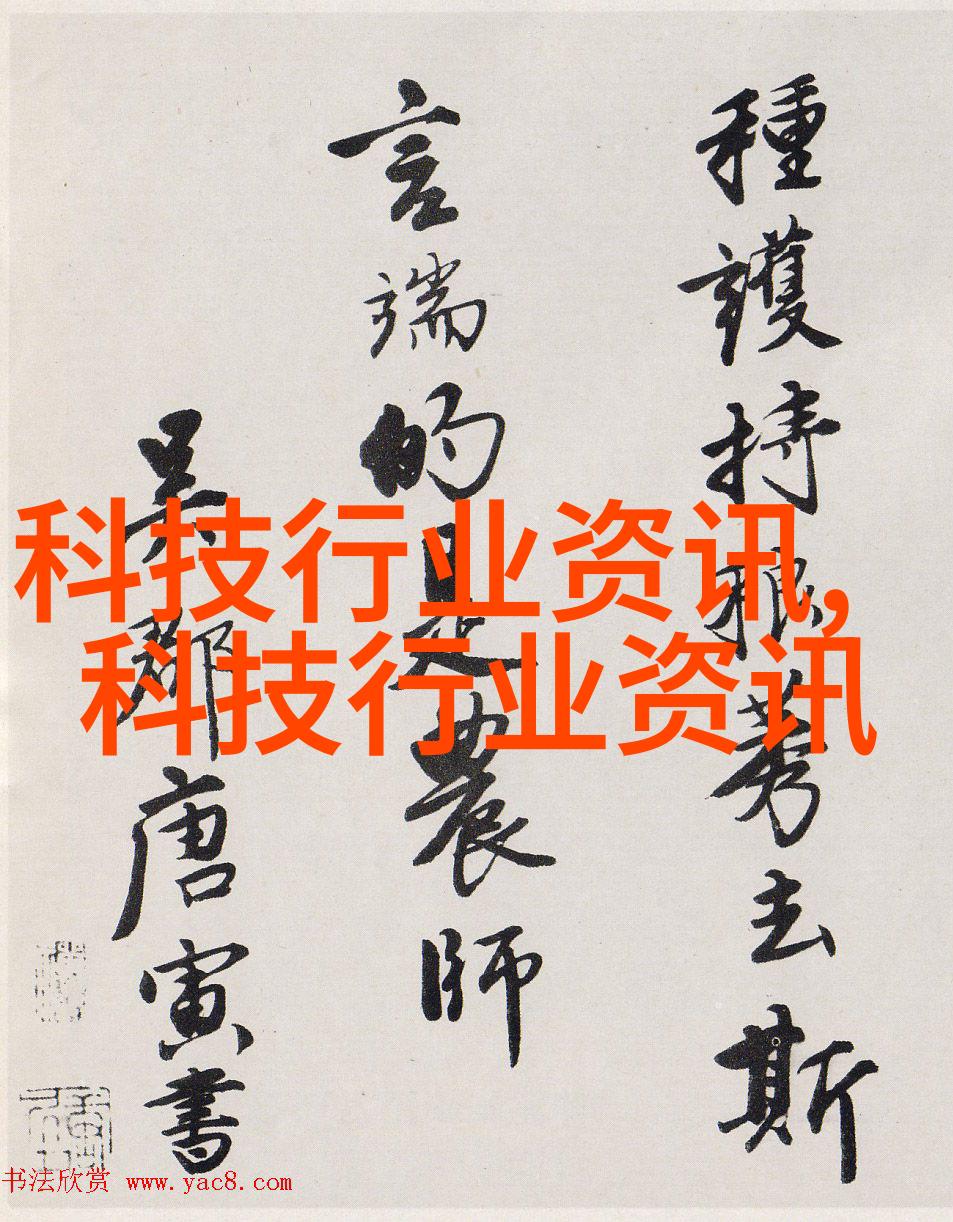 種護持稂莠去斯
言端的是農師
吳郡唐寅書
科技行业资讯,
科技行业资讯
书法欣赏 www.yac8.com